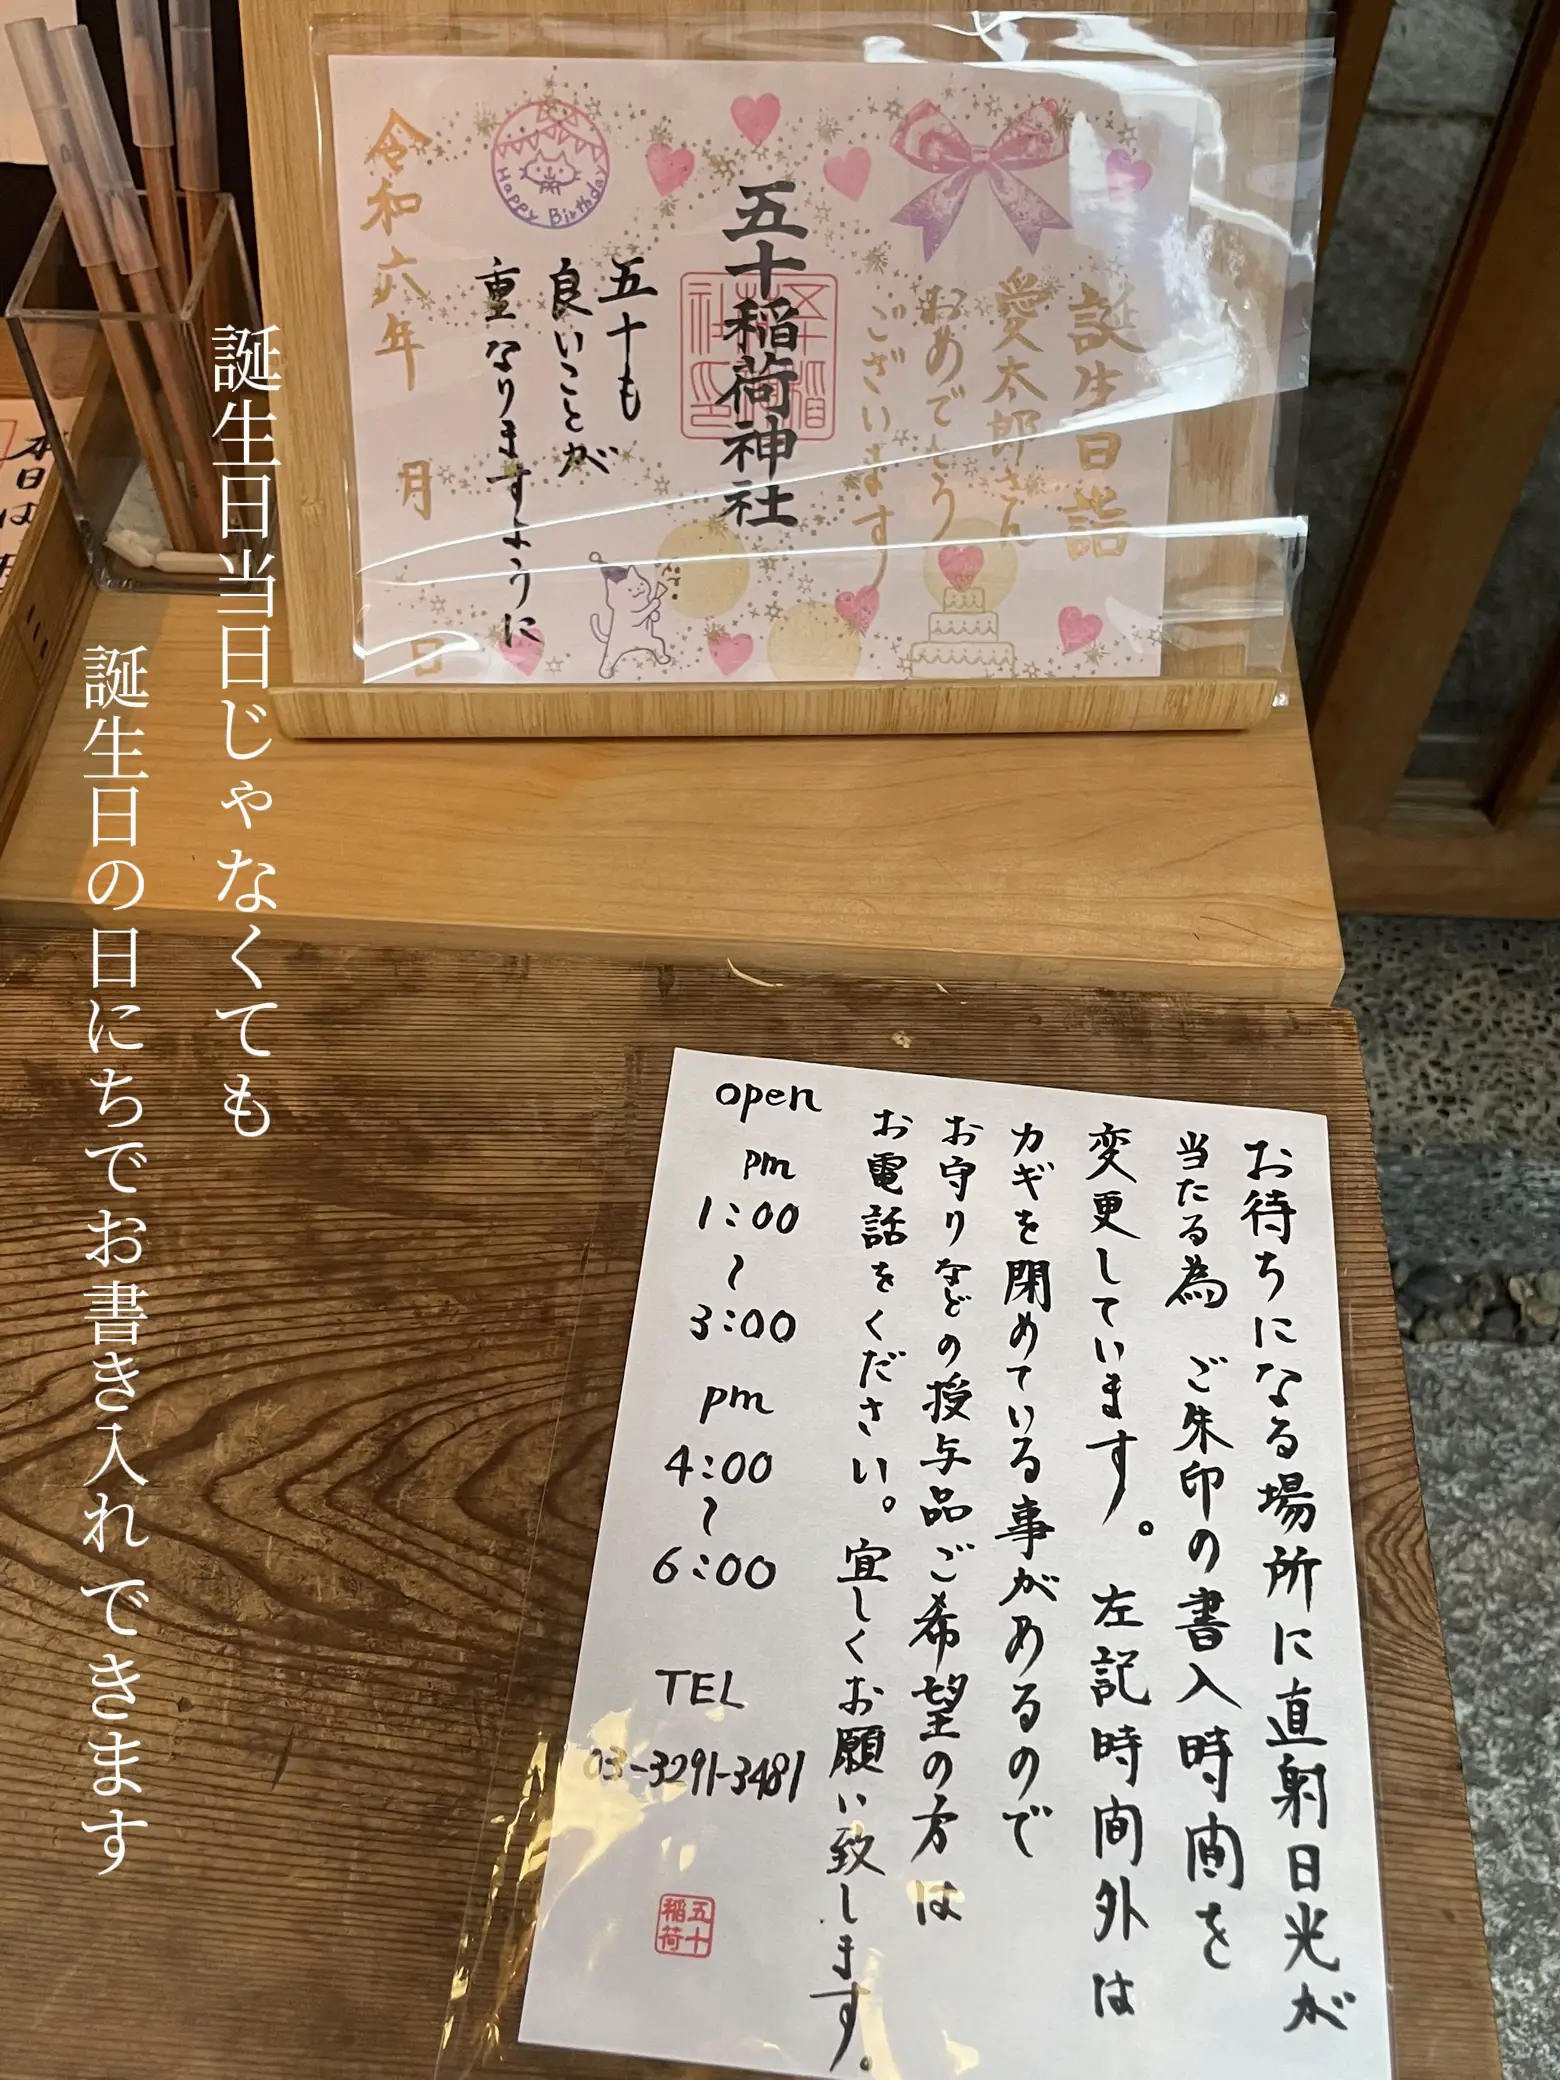 誕生日詣
愛太郎さん
おめでとう
ございます
五十稲荷神社
五十も
良いことが
重なりますように
Happy Birthday
令和六年 月 日
本日は
誕生日当日じゃなくても
誕生日の日にちでお書き入れできます
お待ちになる場所に直射日光が
当たる為 ご朱印の書入時間を
変更しています。左記時間外は
カギを閉めている事があるので
お守りなどの授与品ご希望の方は
お電話をください。宜しくお願い致します。
open
pm
1:00
〜
3:00
pm
4:00
〜
6:00
TEL
03-3291-3481
五十
稲荷